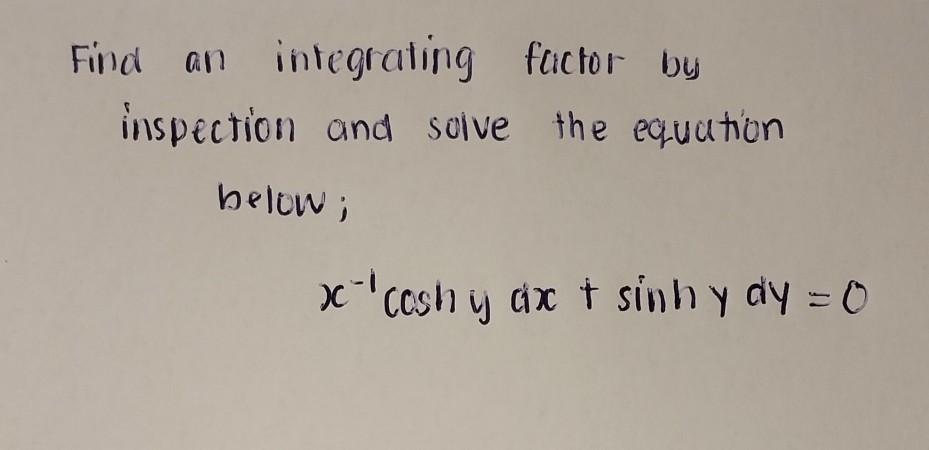 Find an integrating factor by
inspection and solve the equation
below;
x⁻¹cosh y dx + sinh y dy = 0